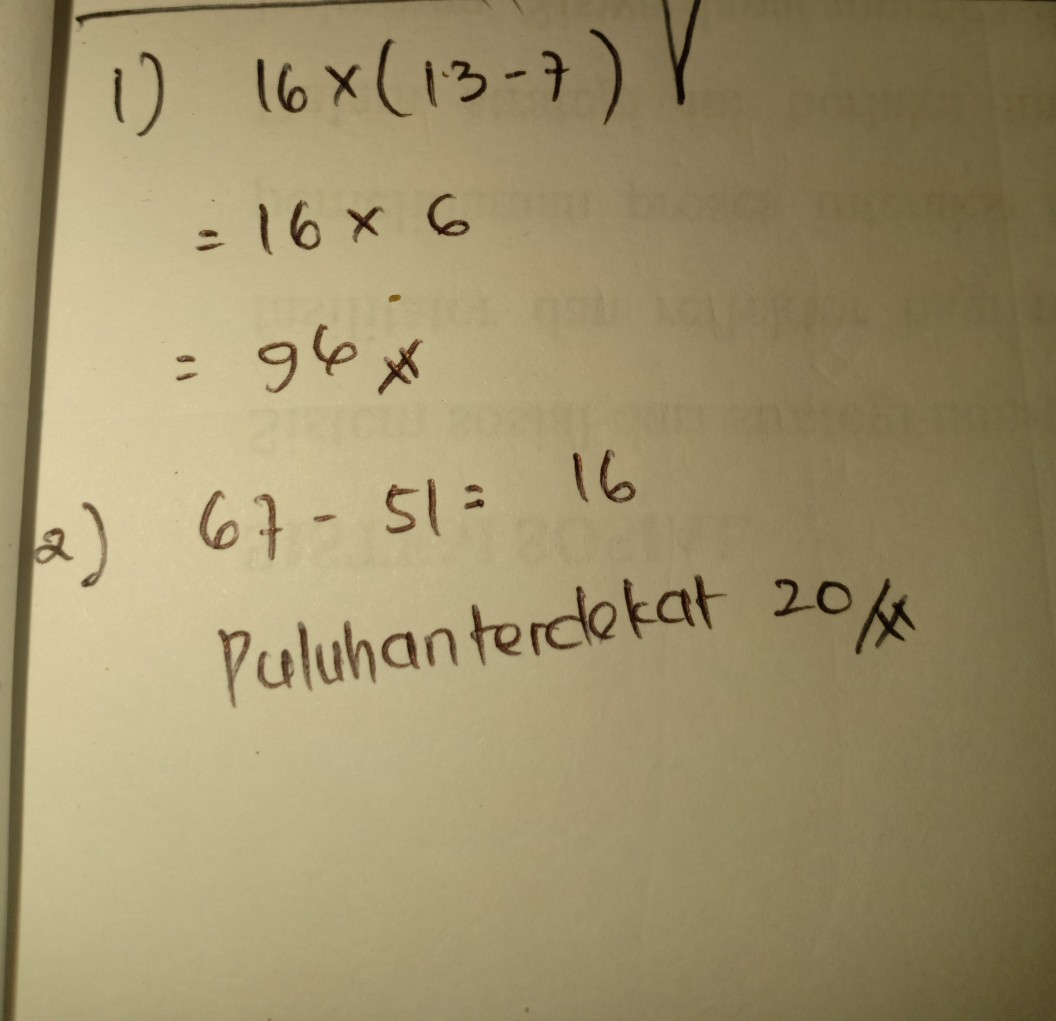 1) 16 x (13 - 7)
= 16 x 6
= 96
2) 67 - 51 = 16
Puluhan terdekat 20